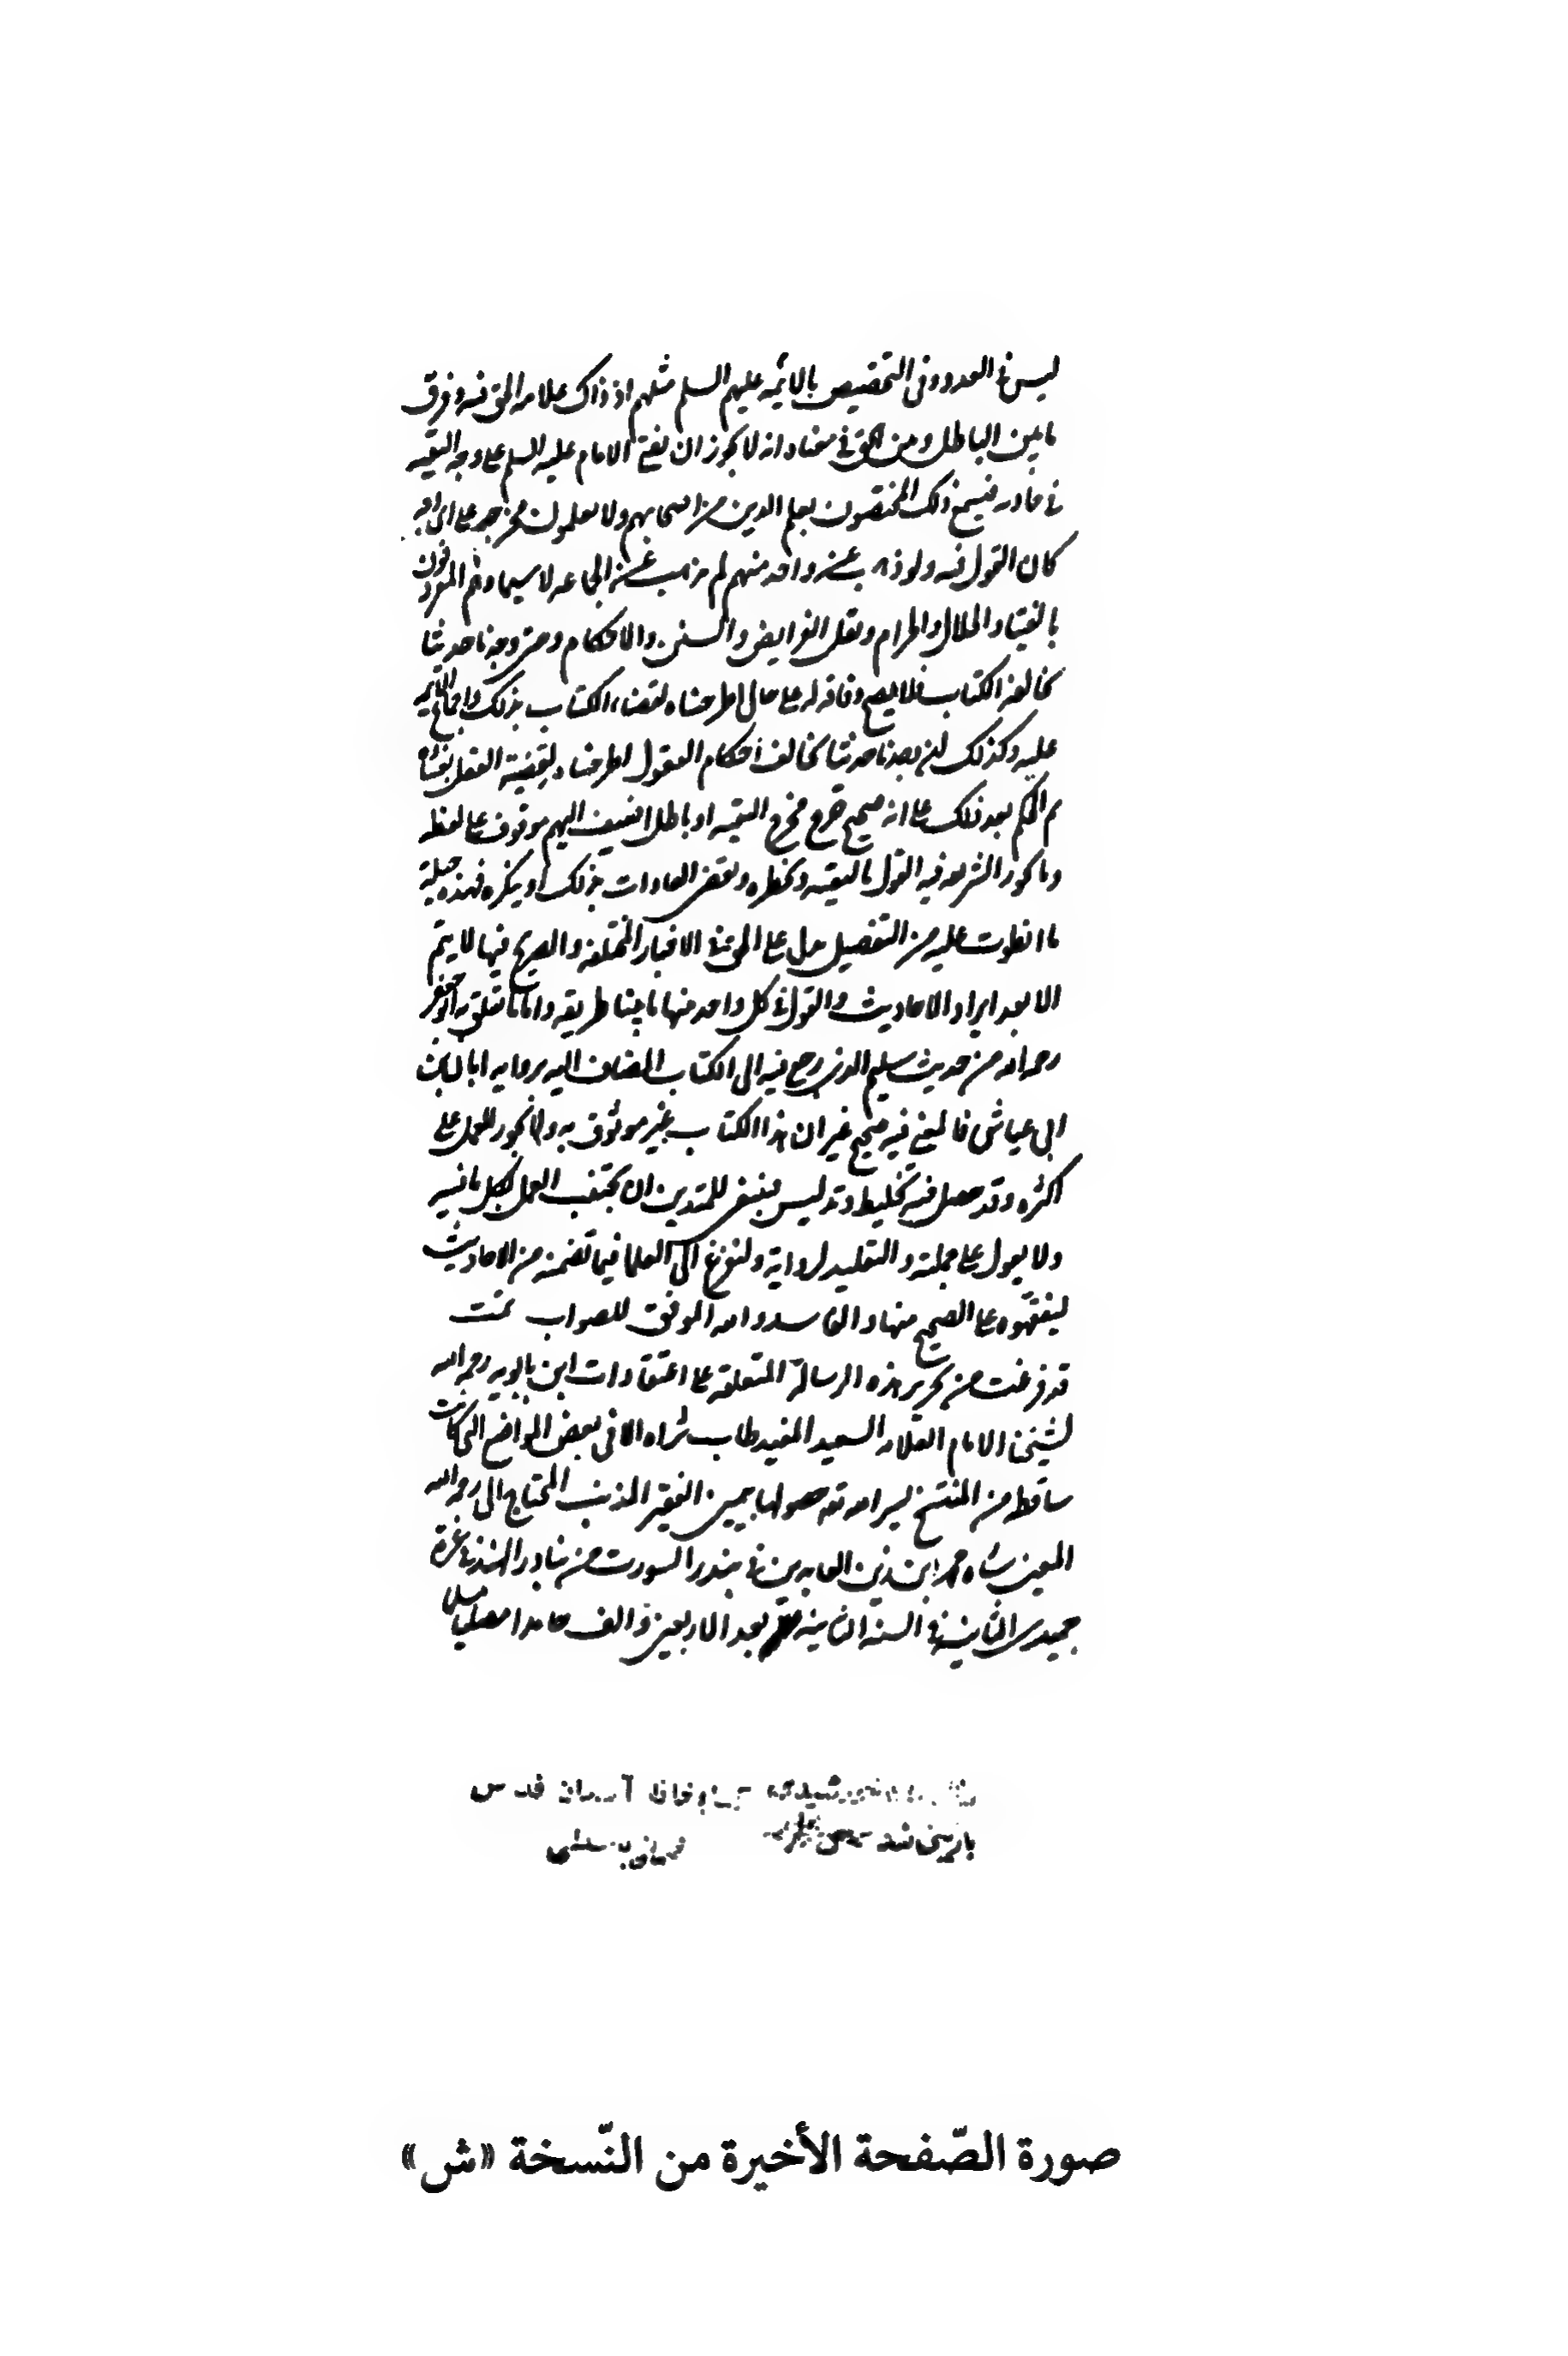 ليس في العدد وفي التخصيص بالائمه عليهم السلم مثلهم اذ ذاك علامه الحق فيه وفرق
ما بين الباطل وبين الحق في معناه وانه لا يجوز ان يفتي الامام عليه السلم على وجه التقيه
في حادثه فيسمع ذلك المختصون بعلم الدين من اصحابهم ولا يعلمون مخرجه على اي وجه
كان القول فيه ولو ذهب عن واحد منهم لم يذهب عن الجماعه لا سيما وهم المعروفون
بالفتيا والحلال والحرام ونقل الفرايض والسنن والاحكام ومتى وجدنا حديثا
يخالفه الكتاب فلا يصح وفاقه له على حال اطرحناه لقضاء الكتاب بذلك واجماع الائمه
عليه وكذلك ان وجدنا حديثا يخالف احكام العقول اطرحناه لقضية العقل بفساده
ثم الحكم بعد ذلك على انه صحيح خرج مخرج التقيه او باطل اضيف اليهم موقوف على لفظه
وما يجوز الشريعه فيه القول بالتقيه وتحظره وتقضي العادات بذلك او ينكره فهذه جملة
ما انطوت عليه من التفصيل تدل على الحق في الاخبار المختلفه والصريح فيها لا يتم
الا بعد ايراد الاحاديث والقول في كل واحد منها ما بينا طريقه واما ما تعلق به ابو جعفر
رحمه الله من حديث سليم الذي رجع فيه الى الكتاب المضاف اليه بروايه ابان بن
ابي عياش فالمعنى فيه صحيح غير ان هذا الكتاب غير موثوق به ولا يجوز العمل على
اكثره وقد حصل فيه تخليط وتدليس فينبغي للمتدين ان يجتنب العمل بكل ما فيه
ولا يعول على جملته والتقليد لرواية وليفزع الى العلما فيما تضمنه من الاحاديث
ليفقهوه على الصحيح منها والفاسد والله الموفق للصواب تمت
قد فرغت من تحرير هذه الرسالة المتعلقه على اعتقادات ابن بابويه رحمه الله
لشيخنا الامام العلامه السعيد المفيد طاب ثراه الا في بعض المواضع التي كانت
ساقطه من المنتسخ يسر الله تعه حصولها بيمين الفقير المذنب المحتاج الى رحمه الله
المعين شاه محمد بن زين العابدين في بندر السورت من بنادر الهند في غرة
جميدى الثانيه في السنه الثامنه بعد الاربعين والف حامدا مصليا مسلما
صورة الصّفحة الأخيرة من النّسخة «ش»